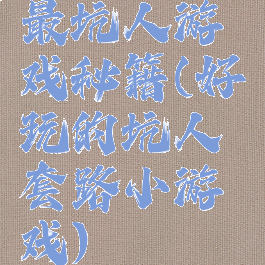 最坑人游
戏秘籍(好
玩的坑人
套路小游
戏)